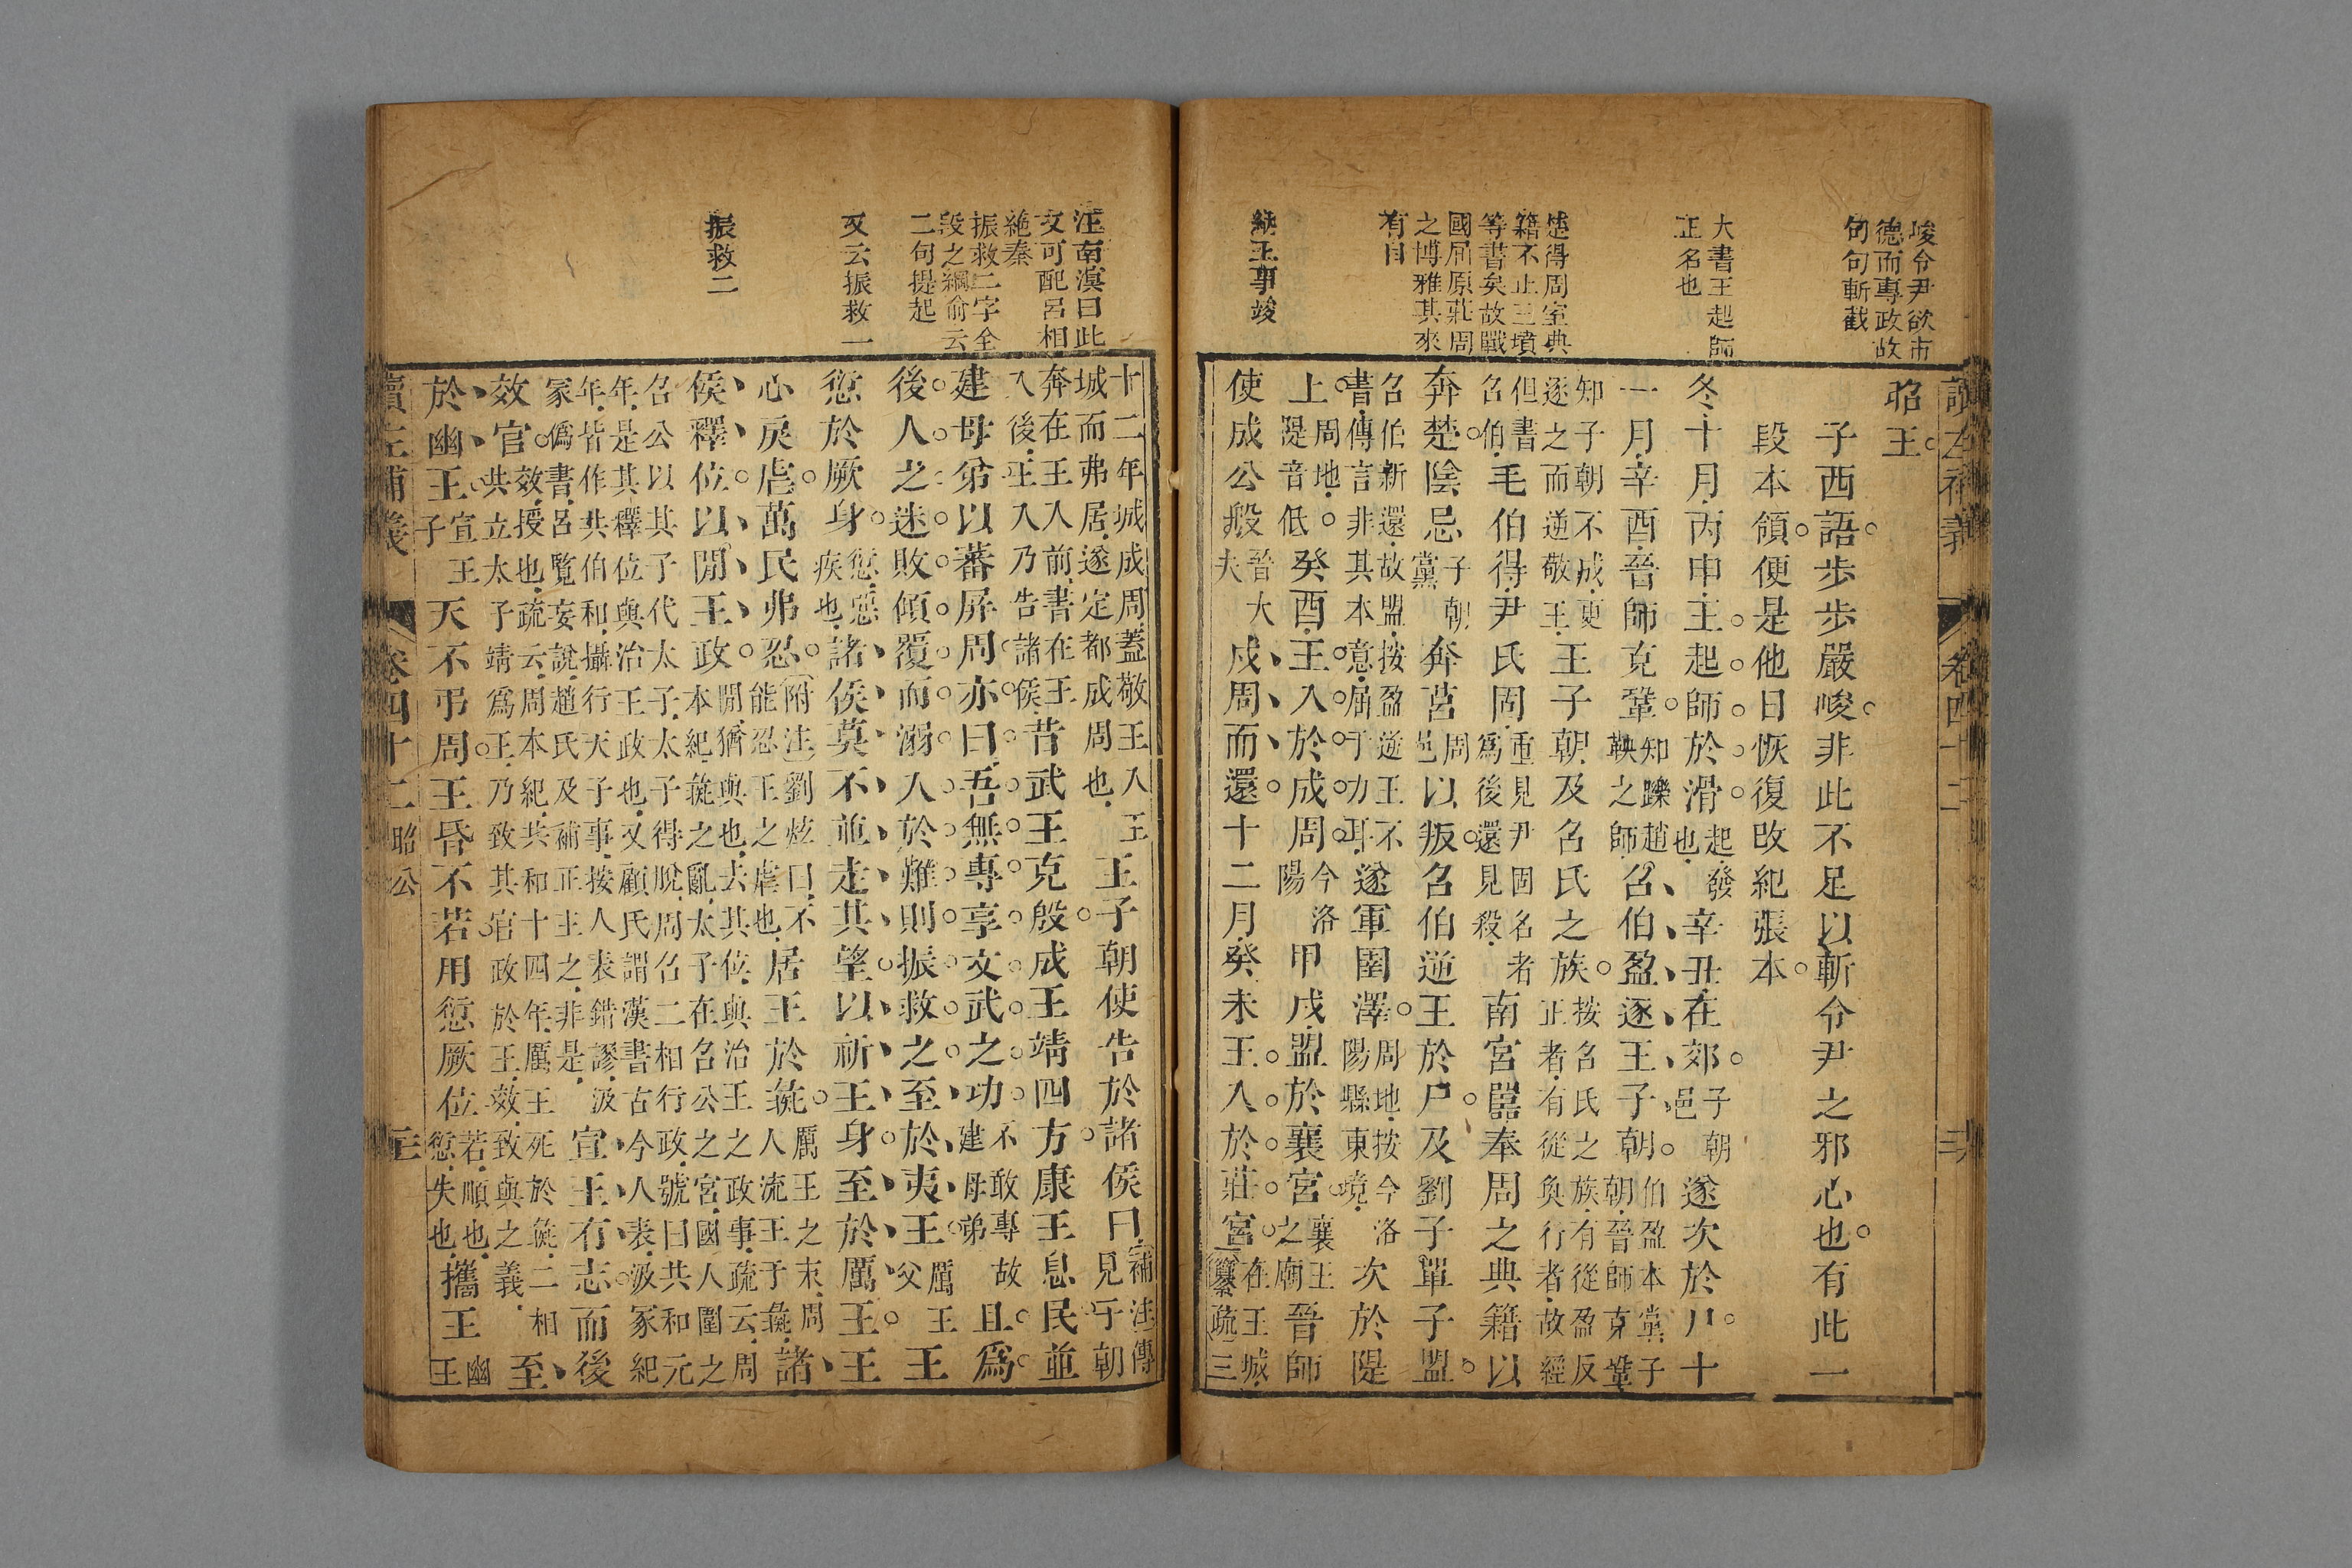 峻令尹欲市
德而專政故
句句斬截
大書王起師
正名也
楚得周室典
籍不止三墳
等書矣故戰
國屈原莊周
之博雅其來
有自
納王事竣
讀左補義 卷四十二
昭王
子西語步步嚴峻非此不足以斬令尹之邪心也有此一
段本領便是他日恢復改紀張本
冬十月丙申王起師於滑起發也辛丑在郊子朝邑遂次於尸十
一月辛酉晉師克鞏知躒趙鞅之師召伯盈逐王子朝伯盈本黨子朝晉師克鞏
知子朝不成更逐之而逆敬王王子朝及召氏之族按召氏之族有從盈反正者有從奐行者故經
但書召伯毛伯得尹氏固重見尹固名者為後還見殺南宮嚚奉周之典籍以
奔楚陰忌子朝黨奔莒周邑以叛召伯逆王於尸及劉子單子盟
召伯新還故盟按盈逆王不書傳言非其本意屈于功耳遂軍圉澤周地按今洛陽縣東境次於隄
上周地隄音低癸酉王入於成周今洛陽甲戌盟於襄宮襄王之廟晉師
使成公般晉大夫戍周而還十二月癸未王入於莊宮在王城纂疏三
汪南溟曰此
文可配呂相
絶秦
振救二字全
段之綱俞云
二句提起
又云振救一
振救二
十二年城成周蓋敬王入王城而弗居遂定都成周也王子朝使告於諸侯曰補注傳見子朝
奔在王人前書在王入後王入乃告諸侯昔武王克殷成王靖四方康王息民並
建母弟以蕃屏周亦曰吾無專享文武之功不敢專故建母弟且為
後人之迷敗傾覆而溺入於難則振救之至於夷王厲王父王
愆於厥身愆惡疾也諸侯莫不並走其望以祈王身至於厲王王
心戾虐萬民弗忍附注劉炫曰不能忍王之虐也居王於彘厲王之末周人流王于彘諸
侯釋位以閒王政閒猶與也去其位與治王之政事疏云周本紀彘之亂太子在召公之宮國人圍之
召公以其子代太子太子得脫周召二相行政號曰共和元年是其釋位與治王政也又顧氏謂漢書古今人表汲冢紀
年皆作共伯和攝行天子事按人表錯謬汲冢偽書呂覽妄說趙氏及補正主之非是宣王有志而後
效官效授也疏云周本紀共和十四年厲王死於彘二相共立太子靖為王乃致其官政於王效致與之義至
於幽王宣王子天不弔周王昏不若用愆厥位若順也愆失也攜王幽王
讀左補義 卷四十二 昭公